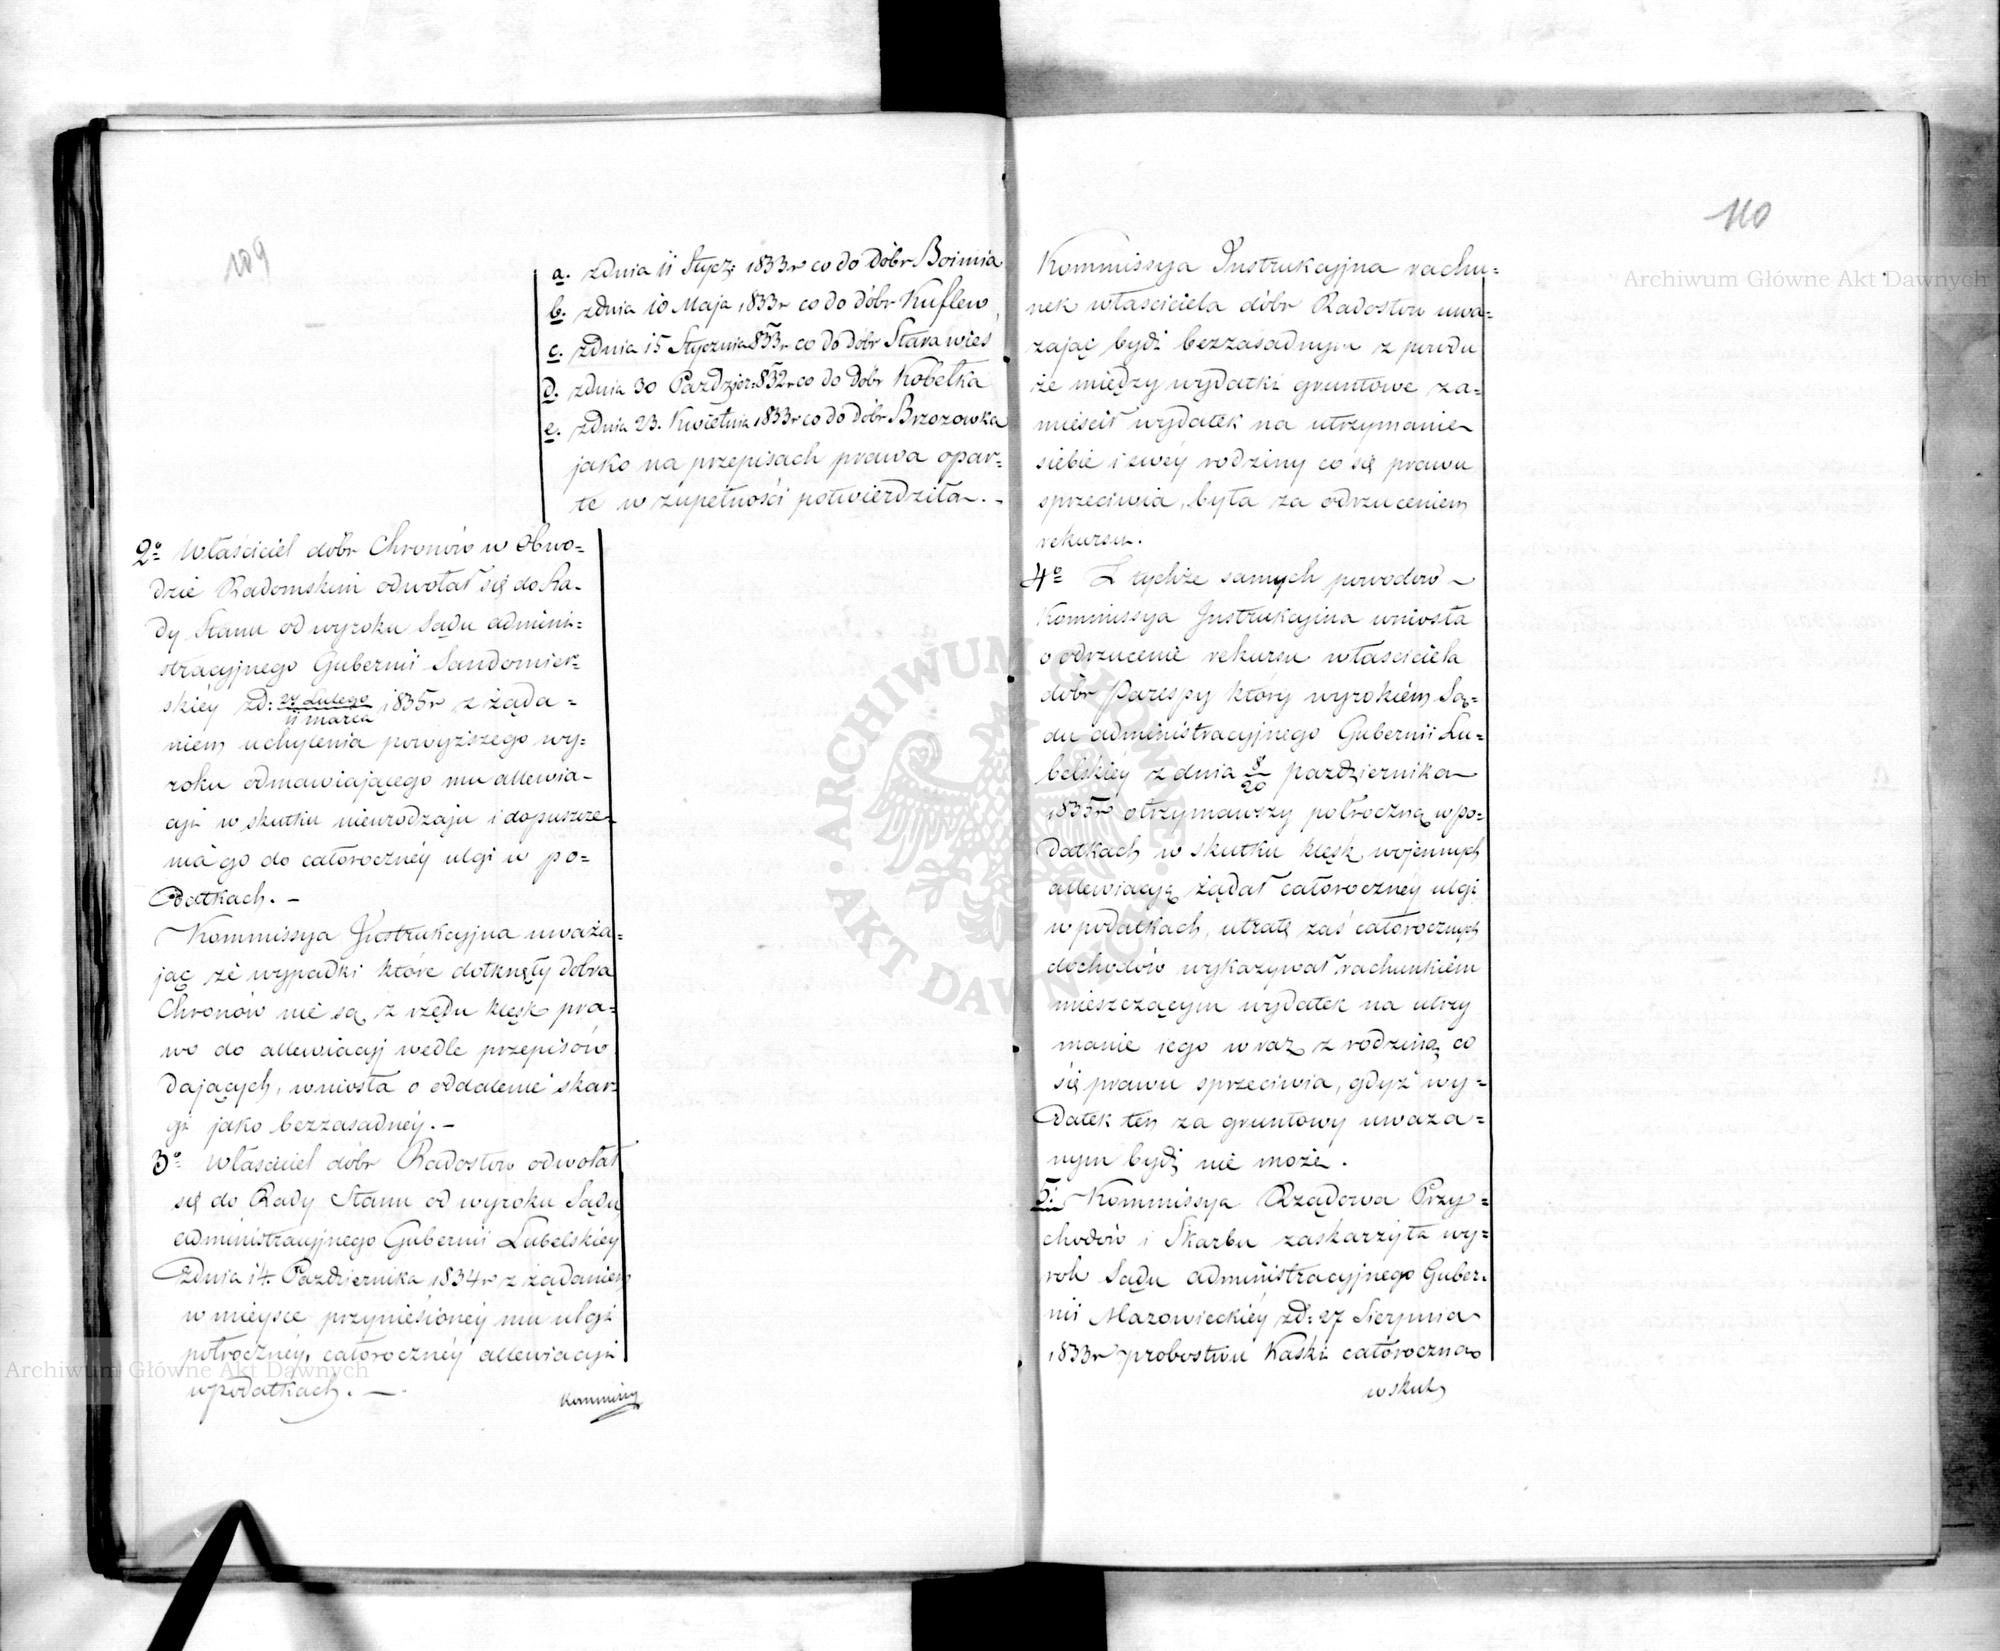 109
a. zdnia 11 Stycz: 1833r co do dóbr Boimia
b. zdnia 10 Maja 1833r co do dóbr Kuflew,
c. zdnia 15 Stycznia 1833r co do dóbr Stara wies
d. zdnia 30 Paździer: 832r co do dóbr Kobełka
e. zdnia 23. Kwietnia 1833r co do dóbr Brzozowka
jako na przepisach prawa opar=
te w zupełności potwierdziła. -
2o Właściciel dóbr Chronów w Obwo=
dzie Radomskim odwołał się do Ra-
dy Stanu od wyroku Sądu admini=
stracyjnego Gubernii Sandomier=
skiéy zd: 27 Lutego / 11 marca 1835r z żąda=
niem uchylenia powyższego wy=
roku odmawiającego mu allewia-
cyi w skutku nieurodzaju i dopuszcze-
nia go do całorocznéy ulgi w po=
datkach. -
Kommissya Instrukcyjna uważa=
jąc że wypadki które dotknęły dobra
Chronów nie są z rzędu klęsk pra=
wo do allewiacyj wedle przepisów
dających, wniosła o oddalenie skar=
gi jako bezzasadnéy. -
3o Właściciel dóbr Radostow odwołał
się do Rady Stanu od wyroku Sądu
administracyjnego Gubernii Lubelskiéy
zdnia 14. Października 1834r z żądaniem
w mieysce przyniesionéy mu ulgi
półrocznéy, całorocznéy allewiacyi
w podatkach. -
110
Kommissya Instrukcyjna rachu=
nek własciciela dóbr Radostow uwa=
zając bydź bezzasadnym z powodu
że między wydatki gruntowe za=
mieścił wydatek na utrzymanie
siebie i swéy rodziny co się prawu
sprzeciwia, była za odrzuceniem
rekursu.
4o Z tychże samych powodów
Kommissya Instrukcyjna wniosła
o odrzucenie rekursu własciciela
dóbr Parespy który wyrokiém Są=
du administracyjnego Gubernii Lu=
belskiéy z dnia 8/20 pazdziernika
1835r otrzymawszy półroczną w po=
datkach w skutku klęsk wojennych
allewiacyą żądał całorocznéy ulgi
w podatkach, utratę zaś całorocznych
dochodów wykazywał rachunkiém
mieszczącym wydatek na utrzy
manie iego wraz z rodziną co
się prawu sprzeciwia, gdyż wy=
datek ten za gruntowy uważa=
nym bydź nie może.
5. Kommissya Rządowa Przy=
chodów i Skarbu zaskarżyła wy=
rok Sądu administracyjnego Guber=
nii Mazowieckiéy zd: 27 Sierpnia
1833r probostwu Kaski całoroczna
w skut
Archiwum Główne Akt Dawnych
Archiwum Główne Akt Dawnych
ARCHIWUM GŁÓWNE
AKT DAWNYCH